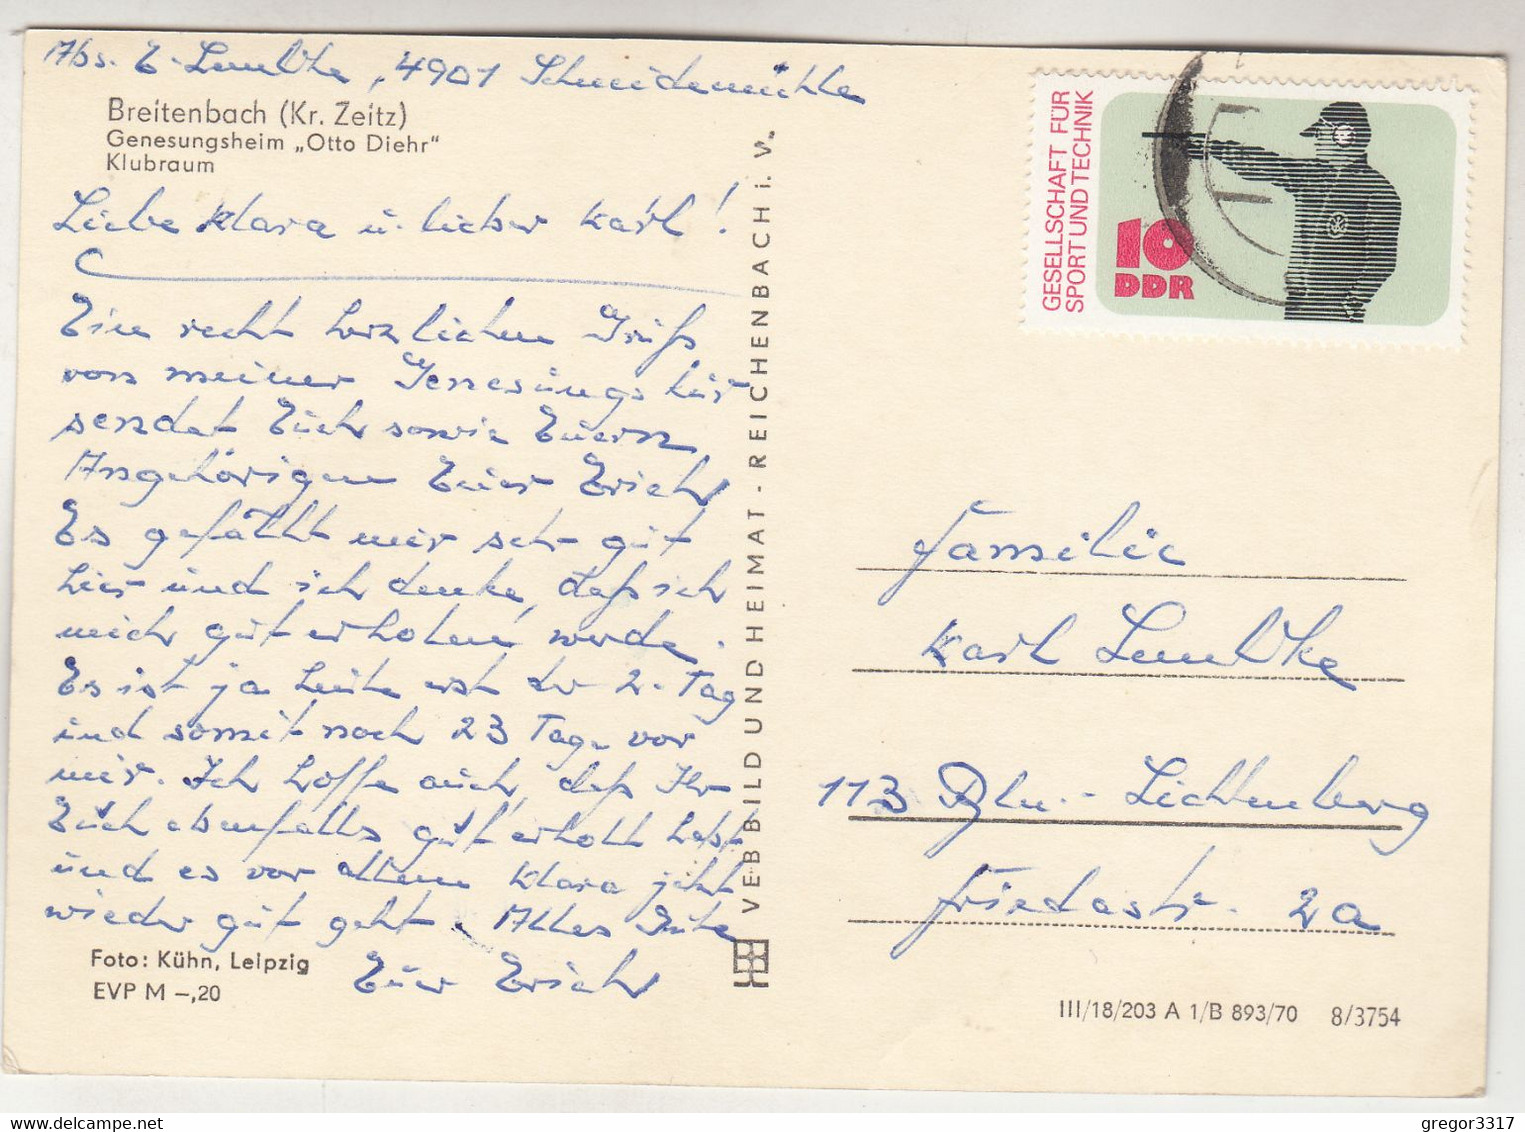 Abs. E. Lembke, 4901 Schneidemühle
Breitenbach (Kr. Zeitz)
Genesungsheim „Otto Diehr"
Klubraum
Liebe Klara u. lieber Karl!
Ein recht herzlichen Grüß
von meiner Genesungskur
sendet Euch sowie Euern
Angehörigen Euer Erich
Es gefällt mir sehr gut
hier und ich denke, daß ich
mich gut erholen werde.
Es ist ja heute erst der 2. Tag
und somit noch 23 Tage vor
mir. Ich hoffe auch, daß Ihr
Euch ebenfalls gut erholt habt
und es vor allem Klara jetzt
wieder gut geht. Alles Gute
Euer Erich
Foto: Kühn, Leipzig
EVP M –,20
VEB BILD UND HEIMAT · REICHENBACH i. V.
GESELLSCHAFT FÜR
SPORT UND TECHNIK
10
DDR
Familie
Karl Lembke
113 Bln.-Lichtenberg
Friedastr. 2a
III/18/203 A 1/B 893/70 8/3754
gregor3317